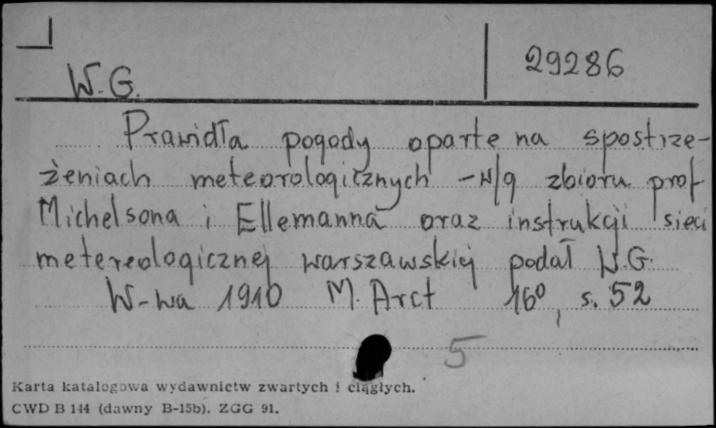 29286
W.G.
Prawidła pogody oparte na spostrze-
żeniach meteorologicznych - w/g zbioru prof
Michelsona i Ellemanna oraz instrukcji sieci
metereologicznej warszawskiej podał W.G.
W-wa 1910 M. Arct 16°, s. 52
5
Karta katalogowa wydawnictw zwartych i ciągłych.
CWD B 144 (dawny B-15b). ZGG 91.